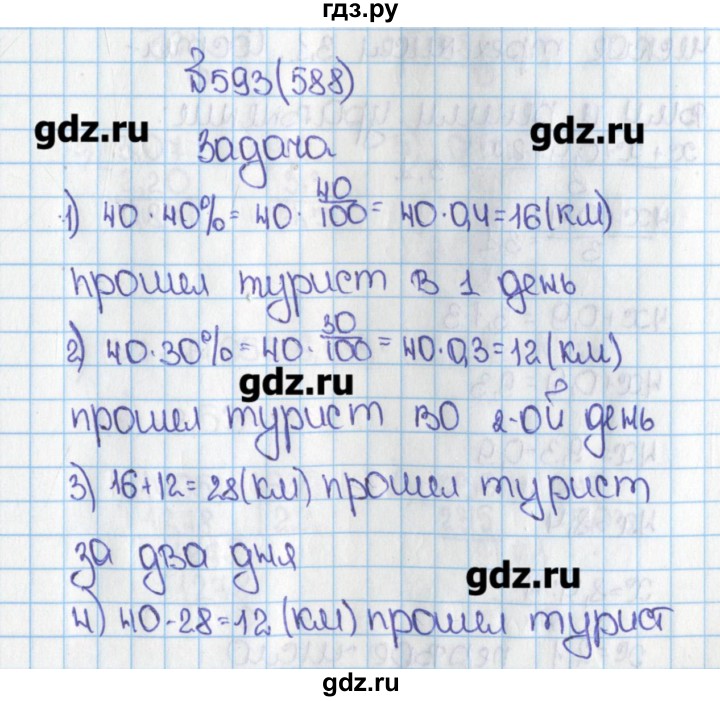 гдз.ру
№593(588)
gdz.ru
gdz.ru
Задача
1) 40·40%= 40· 40/100 = 40·0,4=16(км)
прошел турист в 1 день
2) 40·30%= 40· 30/100 = 40·0,3=12(км)
gdz.ru
прошел турист во 2-ой день
3) 16+12=28(км) прошел турист
за два дня
gdz.ru
4) 40-28=12 (км) прошел турист
gdz.ru